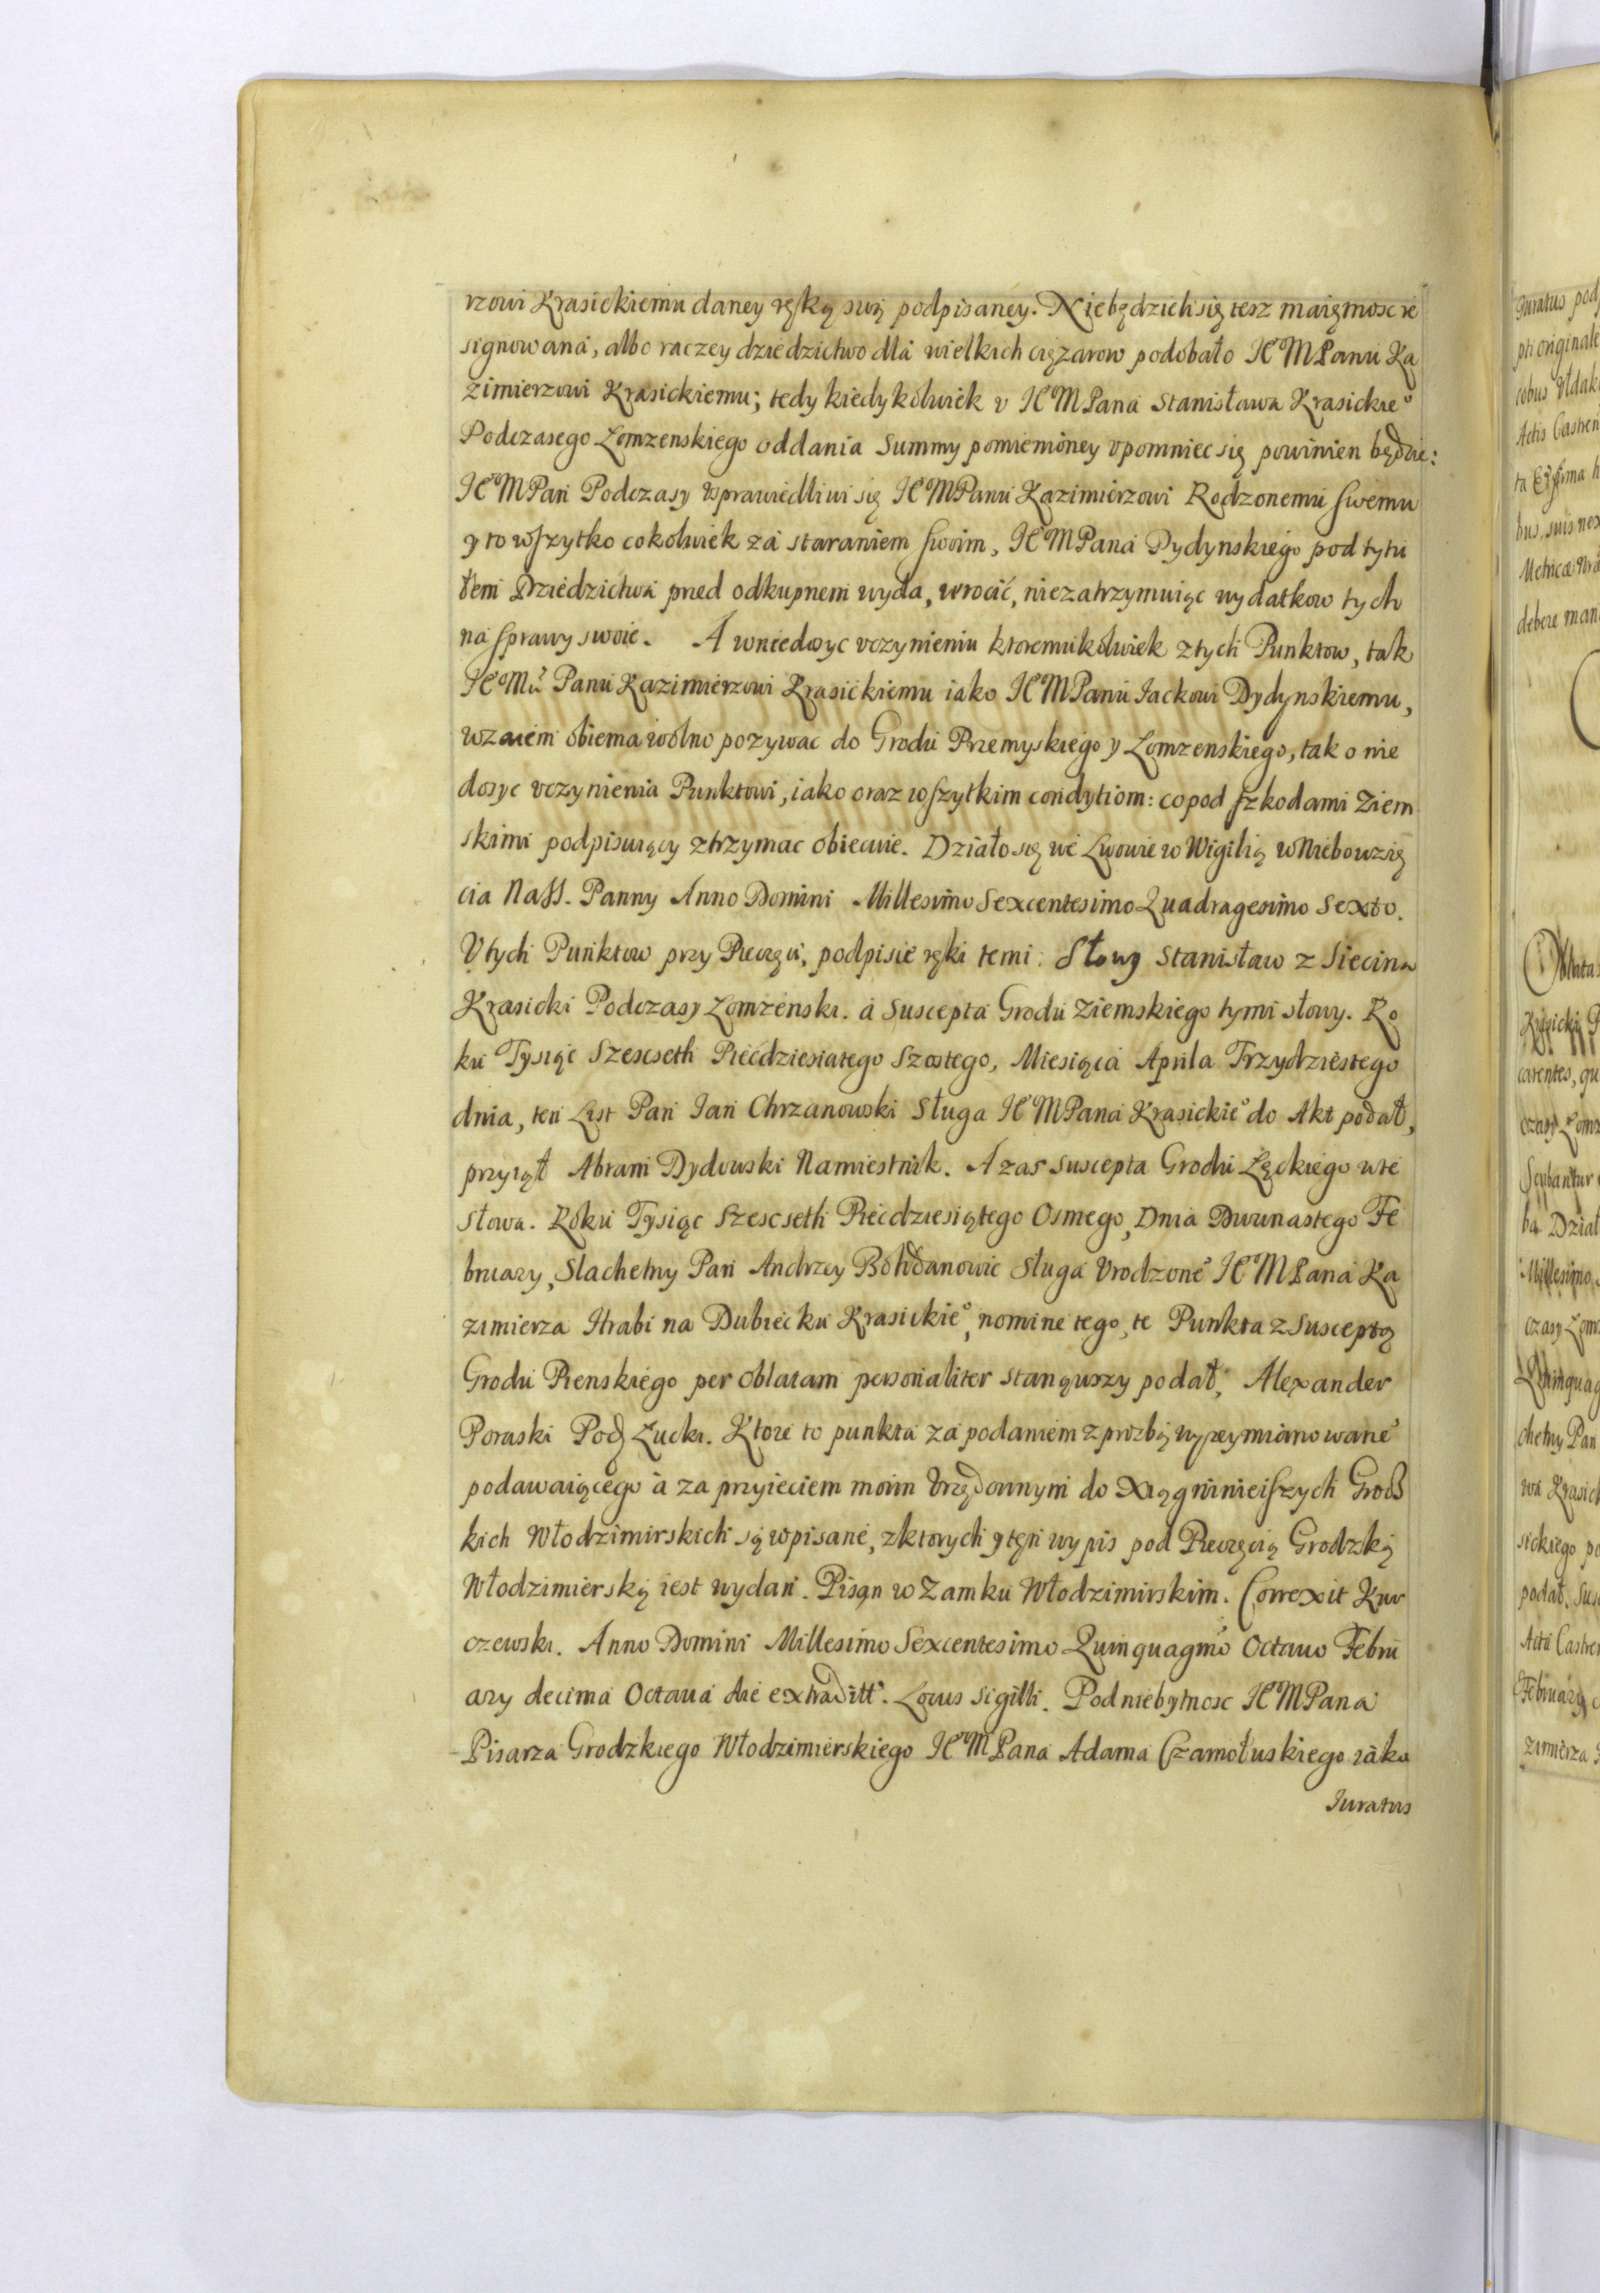 rzowi Krasickiemu daney ręką swą podpisaney. Niebędzieli się tesz maiętnosc re
signowana, albo raczey dziedzictwo dla wielkich ciężarow podobało IE°MPanu Ka
zimierzowi Krasickiemu; tedy kiedykolwiek v IE°MPana Stanisława Krasickie°
Podczasego Łomzenskiego oddania Summy pomienioney vpomniec się powinien będzie:
IE°MPan Podczasy vsprawiedliwi się IE°MPanu Kazimierzowi Rodzonemu swemu
y to wszytko cokolwiek za staraniem swoim, IE°MPana Dydynskiego pod tytu
łem Dziedzictwa pred odkupnem wyda, wrocić, niezatrzymuiąc wydatkow tych
na sprawy swoie. A wniedosyc vczynieniu ktoremukolwiek z tych Punktow, tak
IE°Mu Panu Kazimierzowi Krasickiemu iako IE°MPanu Iackowi Dydynskiemu,
wzaiem obiema wolno pozywac do Grodu Przemyskiego y Łomzenskiego, tak o nie
dosyc vczynienia Punktowi, iako oraz wszytkim condytiom: co pod szkodami Ziem
skimi podpisuiący ztrzymac obiecuie. Działo się we Lwowie w Wigilią wniebowzię
cia Nass. Panny Anno Domini Millesimo Sexcentesimo Quadragesimo Sexto.
V tych Punktow przy Pieczęci, podpisie ręki temi: Słowy Stanisław z Siecina
Krasicki Podczasy Łomzenski. a Suscepta Grodu Ziemskiego tymi słowy. Ro
ku Tysiąc Szescseth Piećdziesiatego Szostego, Miesiąca Aprila Trzydziestego
dnia, ten List Pan Ian Chrzanowski Sługa IE°MPana Krasickie° do Akt podał,
przyiął Abram Dydowski Namiestnik. A zas suscepta Grodu Łęckiego w te
słowa. Roku Tysiąc Szescseth Piećdziesiątego Osmego, Dnia Dwunastego Fe
bruary, Slachetny Pan Andrzey Bohdanowic Sługa Vrodzone° IE°MPana Ka
zimierza Hrabi na Dubiecku Krasickie°, nomine tego, te Punkta z Susceptą
Grodu Prenskiego per oblatam personaliter stanąwszy podał; Alexander
Poraski Pod Łucki. Ktore to punkta za podaniem z prozbą wyzeymianowane°
podawaiącego a za przyieciem moim Vrzędownym do Xiąg ninieiszych Grod
kich Włodzimirskich są wpisane, z ktorych y ten wypis pod Pieczęcią Grodzką
Włodzimierską iest wydan. Pisan w Zamku Włodzimirskim. Correxit Kur
czewski. Anno Domini Millesimo Sexcentesimo Quinquagmo Octauo Febru
ary decima Octaua die extraditt. Locus Sigilli. Pod niebytnosc IE°MPana
Pisarza Grodzkiego Włodzimierskiego IE°MPana Adama Czamołuskiego iako
Iuratus